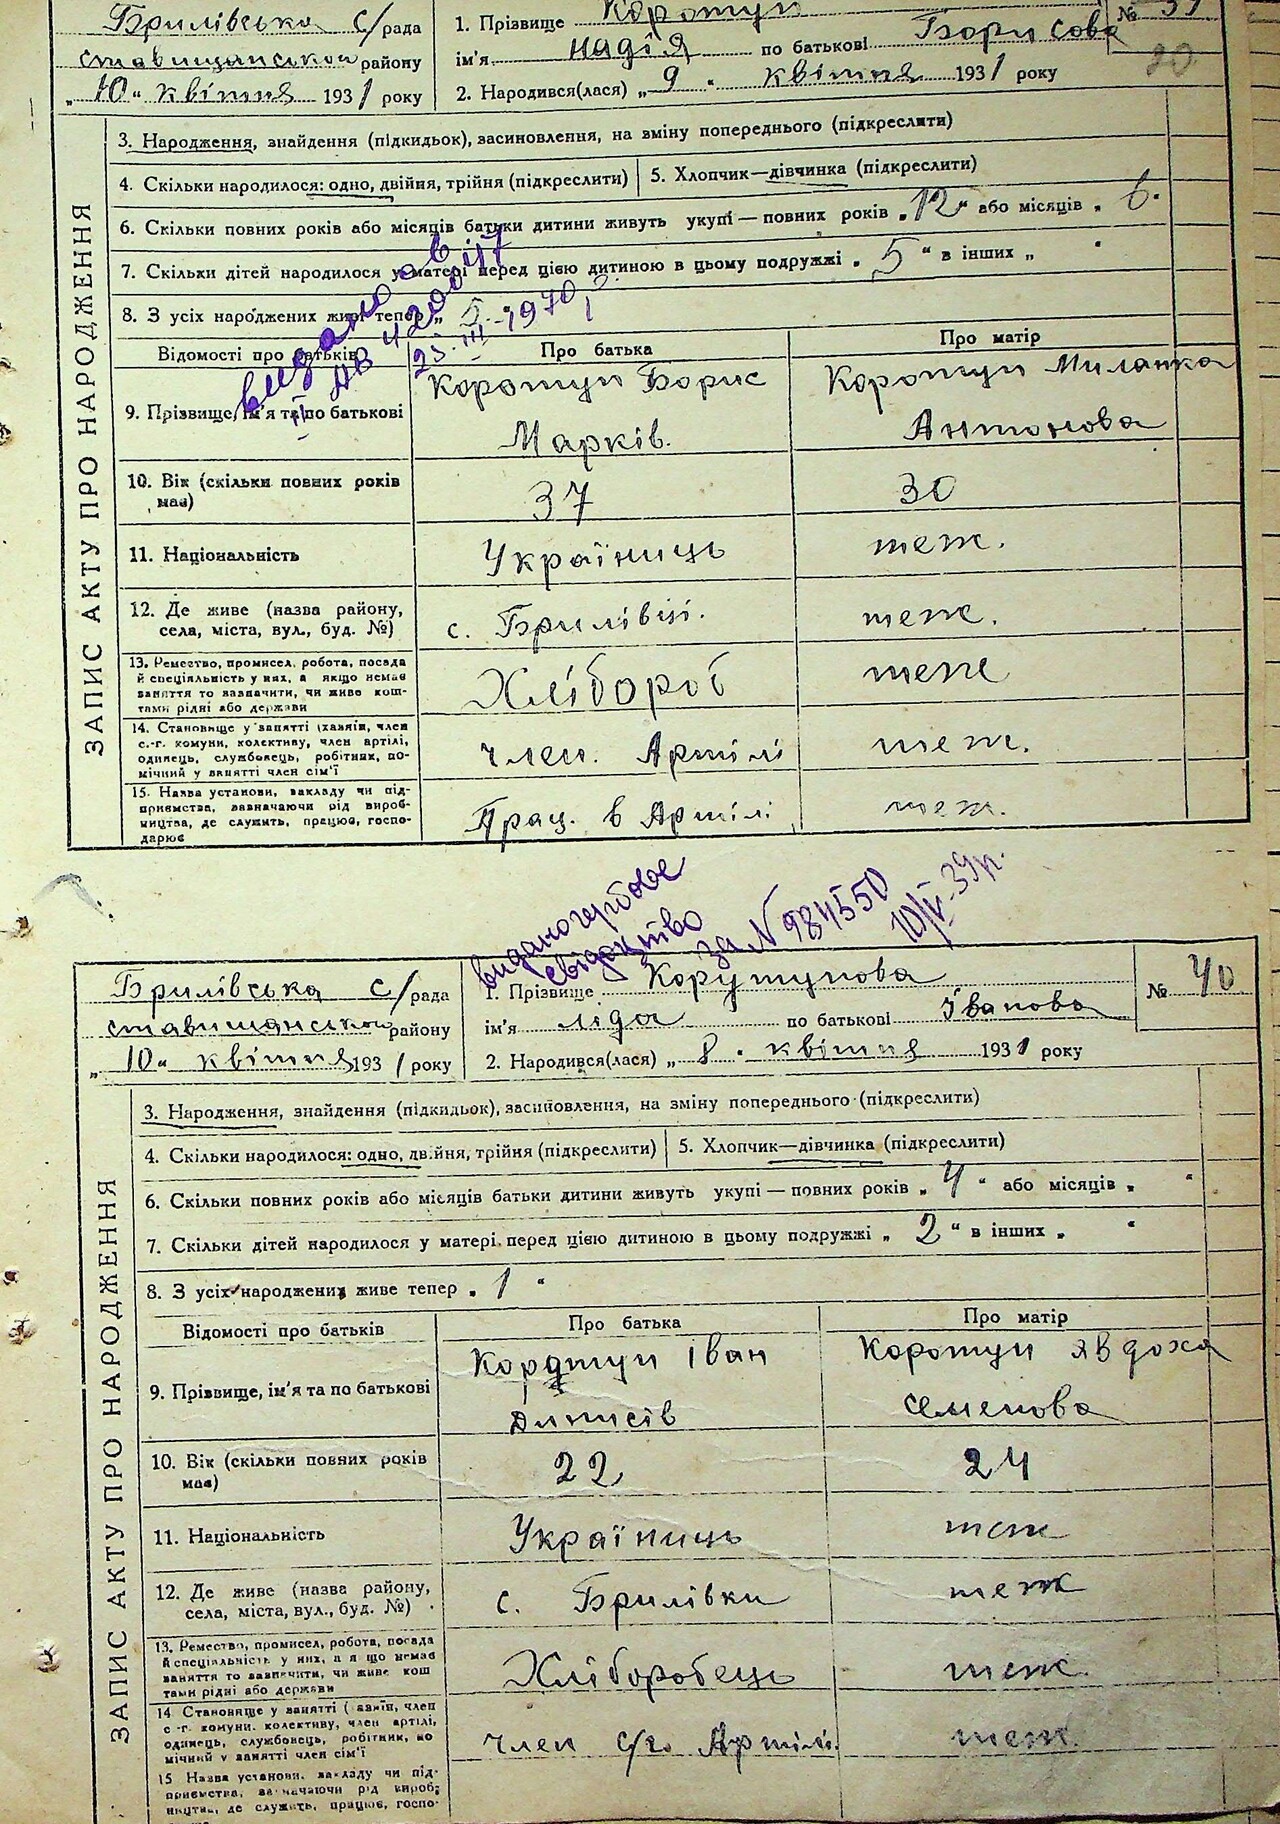 Брилівська с/рада
ставищанського району
„10“ квітня 1931 року
1. Прізвище Коротун
ім'я Надія по батькові Борисова
2. Народився(лася) „9“ квітня 1931 року
№ 39
20
ЗАПИС АКТУ ПРО НАРОДЖЕННЯ
3. Народження, знайдення (підкидьок), засиновлення, на зміну попереднього (підкреслити)
4. Скільки народилося: одно, двійня, трійня (підкреслити)
5. Хлопчик—дівчинка (підкреслити)
6. Скільки повних років або місяців батьки дитини живуть укупі — повних років „12“ або місяців „6.
7. Скільки дітей народилося у матері перед цією дитиною в цьому подружжі „5“ в інших „ “
8. З усіх народжених живе тепер „5“
видано
23.III-1970р.
Відомості про батьків
Про батька
Про матір
9. Прізвище, ім'я та по батькові
Коротун Борис
Марків.
Коротун Миланка
Антонова
10. Вік (скільки повних років
має)
37
30
11. Національність
Україниць
теж.
12. Де живе (назва району,
села, міста, вул., буд. №)
с. Брилівці.
теж.
13. Ремество, промисел, робота, посада
й спеціяльність у них, а якщо немає
заняття то зазначити, чи живе кош-
тами рідні або держави
Хлібороб
теж
14. Становище у занятті (хазяїн, член
с.-г. комуни, колективу, член артілі,
одинець, службовець, робітник, по-
мічний у занятті член сім'ї
член. Артілі
теж.
15. Назва установи, закладу чи під-
приємства, зазначаючи рід вироб-
ництва, де служить, працює, госпо-
дарює
Прац. в Артілі
теж.
видано гербове
свідоцтво
за № 984550
10/V-39р.
Брилівська с/рада
ставищанського району
„10“ квітня 1931 року
1. Прізвище Корутунова
ім'я Ліда по батькові Іванова
2. Народився(лася) „8“ квітня 1931 року
№ 40
ЗАПИС АКТУ ПРО НАРОДЖЕННЯ
3. Народження, знайдення (підкидьок), засиновлення, на зміну попереднього (підкреслити)
4. Скільки народилося: одно, двійня, трійня (підкреслити)
5. Хлопчик—дівчинка (підкреслити)
6. Скільки повних років або місяців батьки дитини живуть укупі — повних років „4“ або місяців „ “
7. Скільки дітей народилося у матері перед цією дитиною в цьому подружжі „2“ в інших „ “
8. З усіх народжених живе тепер „1“
Відомості про батьків
Про батька
Про матір
9. Прізвище, ім'я та по батькові
Коротун Іван
Динисів
Коротун Явдоха
Семенова
10. Вік (скільки повних років
має)
22
24
11. Національність
Україниць
теж
12. Де живе (назва району,
села, міста, вул., буд. №)
с. Брилівки
теж
13. Ремество, промисел, робота, посада
й спеціяльність у них, а якщо немає
заняття то зазначити, чи живе кош
тами рідні або держави
Хліборобець
теж.
14 Становище у занятті (хазяїн, член
с-г. комуни, колективу, член артілі,
одинець, службовець, робітник, по
мічний у занятті член сім'ї
член с/го Артілі.
теж.
15 Назва установи, закладу чи під-
приємства, зазначаючи рід вироб-
ництва, де служить, працює, госпо-